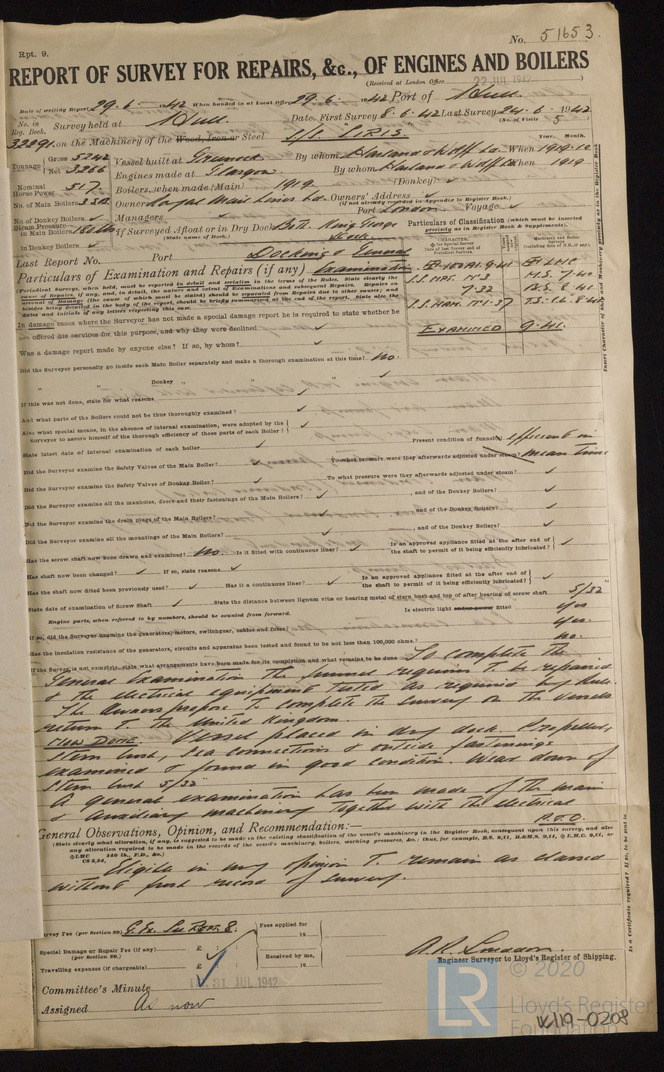 Rpt. 9.
No. 51653.
REPORT OF SURVEY FOR REPAIRS, &c., OF ENGINES AND BOILERS
(Received at London Office 22 JUL 1942 )
Date of writing Report 29. 6. 1942 When handed in at Local Office 29. 6. 1942 Port of Hull
No. in Reg. Book. Survey held at Hull Date, First Survey 8. 6. 42 Last Survey 24. 6. 1942
(No. of Visits 5
on the Machinery of the Wood, Iron or Steel S/S.
Year. Month.
Tonnage Gross 5242 Net 3266 Vessel built at Greenock By whom Harland & Wolff Ld. When 1919-10
Engines made at Glasgow By whom Harland & Wolff Ld When 1919
Nominal Horse Power 517 Boilers, when made (Main) 1919 (Donkey) ✓
No. of Main Boilers Owners Royal Mail Lines Ld. Owners' Address ✓
(if not already recorded in Appendix to Register Book.)
No. of Donkey Boilers ✓ Managers ✓ Port London Voyage ✓
Steam Pressure in Main Boilers If Surveyed Afloat or in Dry Dock Both King George
(State name of Dock.) Dock
in Donkey Boilers ✓
Particulars of Classification (which must be inserted precisely as in Register Book & Supplements).
Last Report No. Port
Particulars of Examination and Repairs (if any) Docking & General Examination
EXAMINED 9.41.
In damage cases where the Surveyor has not made a special damage report he is required to state whether he
offered his services for this purpose, and why they were declined ✓
Was a damage report made by anyone else? If so, by whom? ✓
Did the Surveyor personally go inside each Main Boiler separately and make a thorough examination at this time? No.
" " Donkey " " " " ✓
If this was not done, state for what reasons
And what parts of the Boilers could not be thoroughly examined? ✓
Also what special means, in the absence of internal examination, were adopted by the
Surveyor to assure himself of the thorough efficiency of those parts of each Boiler? ✓
State latest date of internal examination of each boiler Present condition of funnel(s) efficient in
mean time
Did the Surveyor examine the Safety Valves of the Main Boiler? ✓ To what pressure were they afterwards adjusted under steam?
Did the Surveyor examine the Safety Valves of Donkey Boiler? ✓ To what pressure were they afterwards adjusted under steam? ✓
Did the Surveyor examine all the manholes, doors and their fastenings of the Main Boilers? ✓ , and of the Donkey Boilers? ✓
Did the Surveyor examine the drain plugs of the Main Boilers? ✓ , and of the Donkey Boilers? ✓
Did the Surveyor examine all the mountings of the Main Boilers? ✓ , and of the Donkey Boilers? ✓
Has the screw shaft now been drawn and examined? No. Is it fitted with continuous liner? ✓ Is an approved appliance fitted at the after end of
the shaft to permit of it being efficiently lubricated? ✓
Has shaft now been changed? ✓ If so, state reasons ✓
Has the shaft now fitted been previously used? ✓ Has it a continuous liner? ✓ Is an approved appliance fitted at the after end of
the shaft to permit of it being efficiently lubricated? ✓
State date of examination of Screw Shaft ✓ State the distance between lignum vitæ or bearing metal of stern bush and top of after bearing of screw shaft 5/32"
Engine parts, when referred to by numbers, should be counted from forward. Is electric light and/or power fitted Yes
If so, did the Surveyor examine the generators, motors, switchgear, cables and fuses? Yes.
Has the insulation resistance of the generators, circuits and apparatus been tested and found to be not less than 100,000 ohms? No.
If the Survey is not complete, state what arrangements have been made for its completion and what remains to be done To complete the
General Examination the funnel requires to be repaired
& the electrical equipment tested as required by Rule.
The Owners propose to complete the survey on the vessels
return to the United Kingdom.
NOW DONE. Vessel placed in dry dock. Propeller,
Stern bush, sea connections & outside fastenings
examined & found in good condition. Wear down of
stern bush 5/32"
A general examination has been made of the main
& Auxiliary machinery together with the electrical
P.T.O.
General Observations, Opinion, and Recommendation:—
(State clearly what alteration, if any, is suggested to be made in the existing classification of the vessel's machinery in the Register Book, consequent upon this survey, and also
any alteration required to be made in the records of the vessel's machinery, boilers, working pressures, &c.; thus, for example, B.S. 9,11, B.&M.S. 9,11, L.M.C. 9,11, or
Eligible in my opinion to remain as classed
without fresh record of survey.
Survey Fee (per Section 29)
Fees applied for
19
Special Damage or Repair Fee (if any) £ : :
(per Section 29.)
Received by me,
19
Travelling expenses (if chargeable) £ : :
Engineer Surveyor to Lloyd's Register of Shipping.
Committee's Minute 31 JUL 1942
Assigned As now
LR
© 2020
Lloyd's Register
Foundation
W119-0208